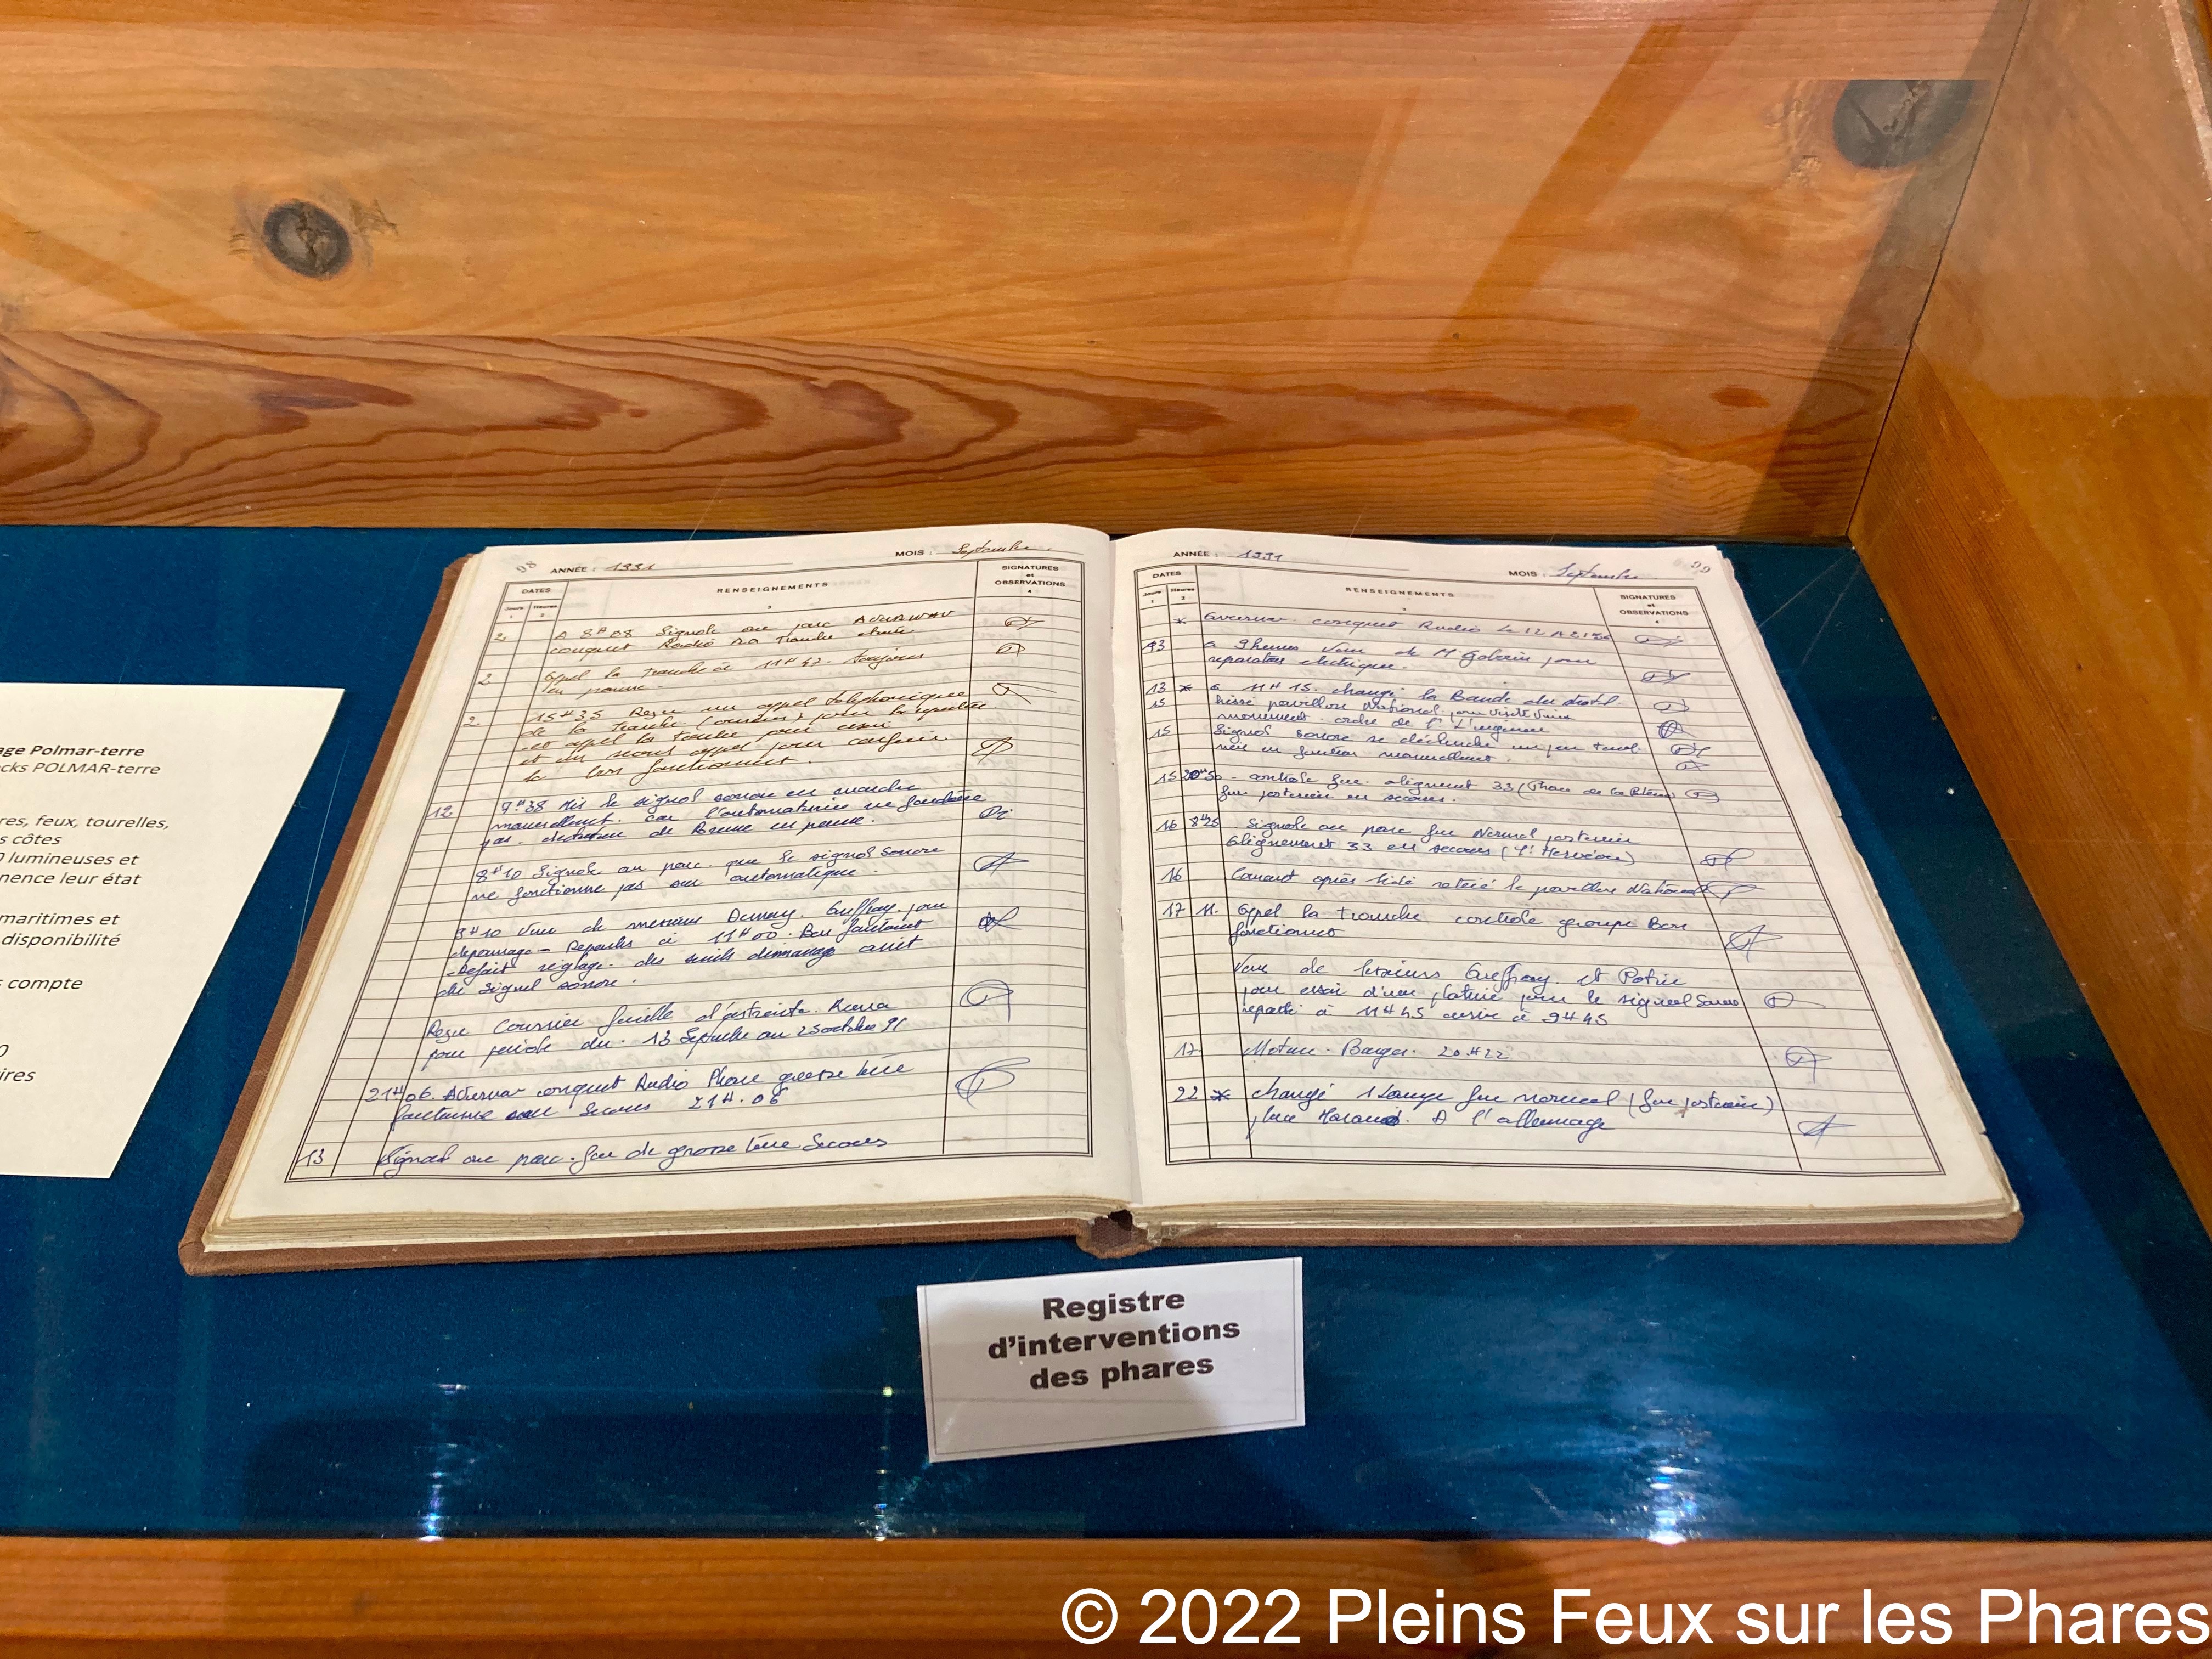 age Polmar-terre
cks POLMAR-terre
res, feux, tourelles,
s côtes
0 lumineuses et
nence leur état
maritimes et
disponibilité
compte
0
ires
98
ANNÉE : 1991
MOIS : Septembre
DATES
Jours
Heures
RENSEIGNEMENTS
SIGNATURES
et
OBSERVATIONS
1
2
3
4
2 A 8H08 Signale au parc
conquet Radio
2 Appel la Tranche à 11H47. toujours
en panne
2 15H35 Reçu un appel téléphonique
de la Tranche pour
et appel la Tranche pour essai
et un second appel pour
le bon fonctionnement.
12 7H38 Mis le signal sonore en marche
manuellement. car l'automatisme ne fonctionne
pas. détecteur de Brume en panne.
8H10 Signale au parc que le signal sonore
ne fonctionne pas en automatique.
Venu de messieurs Gueffroy. pour
dépannage - Repartis à 11H00. Bon fonctionnt
réglage. des seuils démarrage arrêt
du signal sonore.
Reçu Courrier feuille d'astreinte.
pour période du 13 Septembre au 25 octobre 91
21H06. Avurnav conquet Radio Phare grosse terre
fonctionne sur Secours 21H.06
13 Signale au parc. feu de grosse terre Secours
ANNÉE : 1991
MOIS : Septembre
99
DATES
Jours
Heures
RENSEIGNEMENTS
SIGNATURES
et
OBSERVATIONS
1
2
3
4
* Avurnav conquet Radio Le 12 A
13 a 9 heures Venu de Mr pour
réparation électrique.
13 * a 11H15. changé la Bande du
15 hissé pavillon National pour visite
monument. ordre de
15 Signal sonore se déclenche un peu tard.
mis en fonction manuellement.
15 20H50 - contrôle feu. alignement 33 (Phare de la
feu postérieur en secours.
16 8H25 Signale au parc feu Normal postérieur
Alignement 33 en secours
16 Courant après midi retiré le pavillon National
17 11. Appel la Tranche contrôle groupe Bon
fonctionnt
Venu de Messieurs Gueffroy et
pour essai d'une platine pour le signal Sonore
reparti à 11H45 arrivé à 9H45
17 20.H22
22 * changé 1 Lampe feu normal (feu postérieur)
A l'allumage
Registre
d'interventions
des phares
© 2022 Pleins Feux sur les Phares